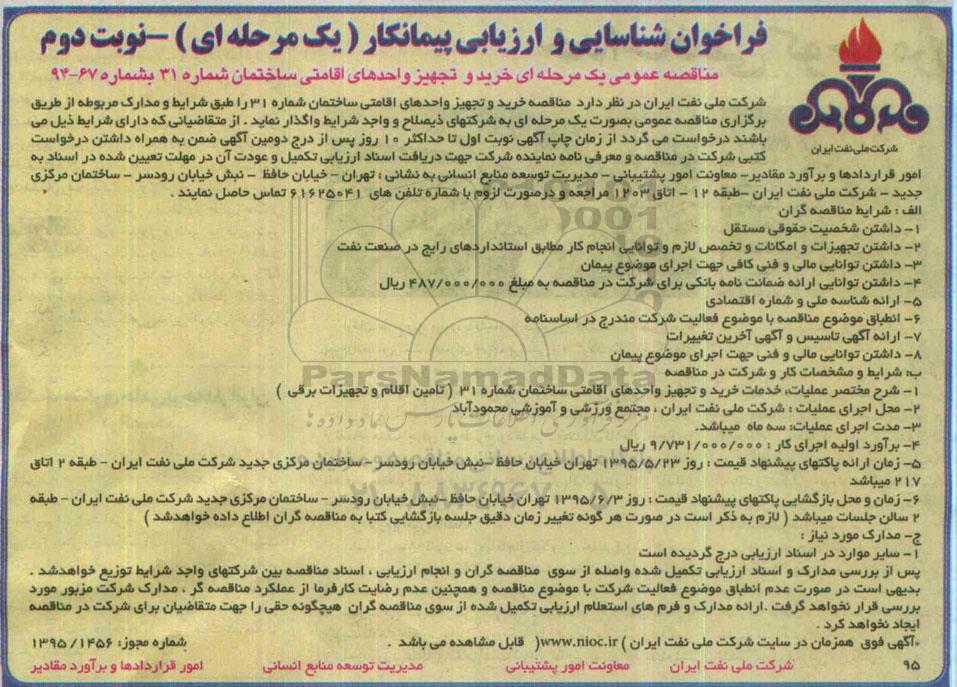 فراخوان شناسایی و ارزیابی پیمانکار ( یک مرحله ای ) –نوبت دوم
مناقصه عمومی یک مرحله ای خرید و تجهیز واحدهای اقامتی ساختمان شماره ۳۱ بشماره ۶۷-۹۴
شرکت ملی نفت ایران
شرکت ملی نفت ایران در نظر دارد مناقصه خرید و تجهیز واحدهای اقامتی ساختمان شماره ۳۱ را طبق شرایط و مدارک مربوطه از طریق
برگزاری مناقصه عمومی بصورت یک مرحله ای به شرکتهای ذیصلاح و واجد شرایط واگذار نماید . از متقاضیانی که دارای شرایط ذیل می
باشند درخواست می گردد از زمان چاپ آگهی نوبت اول تا حداکثر ۱۰ روز پس از درج دومین آگهی ضمن به همراه داشتن درخواست
کتبی شرکت در مناقصه و معرفی نامه نماینده شرکت جهت دریافت اسناد ارزیابی تکمیل و عودت آن در مهلت تعیین شده در اسناد به
امور قراردادها و برآورد مقادیر- معاونت امور پشتیبانی - مدیریت توسعه منابع انسانی به نشانی : تهران - خیابان حافظ - نبش خیابان رودسر - ساختمان مرکزی
جدید - شرکت ملی نفت ایران -طبقه ۱۲ - اتاق ۱۲۰۳ مراجعه و درصورت لزوم با شماره تلفن های ۶۱۶۲۵۰۴۱ تماس حاصل نمایند .
الف : شرایط مناقصه گران
۱- داشتن شخصیت حقوقی مستقل
۲- داشتن تجهیزات و امکانات و تخصص لازم و توانایی انجام کار مطابق استانداردهای رایج در صنعت نفت
۳- داشتن توانایی مالی و فنی کافی جهت اجرای موضوع پیمان
۴- داشتن توانایی ارائه ضمانت نامه بانکی برای شرکت در مناقصه به مبلغ ۴۸۷/۰۰۰/۰۰۰ ریال
۵- ارائه شناسه ملی و شماره اقتصادی
۶- انطباق موضوع مناقصه با موضوع فعالیت شرکت مندرج در اساسنامه
۷- ارائه آگهی تاسیس و آگهی آخرین تغییرات
۸- داشتن توانایی مالی و فنی جهت اجرای موضوع پیمان
ب: شرایط و مشخصات کار و شرکت در مناقصه
ParsNamadData
۱- شرح مختصر عملیات، خدمات خرید و تجهیز واحدهای اقامتی ساختمان شماره ۳۱ ( تامین اقلام و تجهیزات برقی )
۲- محل اجرای عملیات : شرکت ملی نفت ایران ، مجتمع ورزشی و آموزشی محمودآباد
۳- مدت اجرای عملیات: سه ماه میباشد.
۴- برآورد اولیه اجرای کار : ۹/۷۳۱/۰۰۰/۰۰۰ ریال
۵- زمان ارائه پاکتهای پیشنهاد قیمت : روز ۱۳۹۵/۵/۲۳ تهران خیابان حافظ -نبش خیابان رودسر - ساختمان مرکزی جدید شرکت ملی نفت ایران - طبقه ۲ اتاق
۲۱۷ میباشد
۶- زمان و محل بازگشایی پاکتهای پیشنهاد قیمت : روز ۱۳۹۵/۶/۳ تهران خیابان حافظ -نبش خیابان رودسر - ساختمان مرکزی جدید شرکت ملی نفت ایران - طبقه
۲ سالن جلسات میباشد ( لازم به ذکر است در صورت هر گونه تغییر زمان دقیق جلسه بازگشایی کتبا به مناقصه گران اطلاع داده خواهدشد )
ج- مدارک مورد نیاز :
۱- سایر موارد در اسناد ارزیابی درج گردیده است
پس از بررسی مدارک و اسناد ارزیابی تکمیل شده واصله از سوی مناقصه گران و انجام ارزیابی ، اسناد مناقصه بین شرکتهای واجد شرایط توزیع خواهدشد .
بدیهی است در صورت عدم انطباق موضوع فعالیت شرکت با موضوع مناقصه و همچنین عدم رضایت کارفرما از عملکرد مناقصه گر ، مدارک شرکت مزبور مورد
بررسی قرار نخواهد گرفت .ارائه مدارک و فرم های استعلام ارزیابی تکمیل شده از سوی مناقصه گران هیچگونه حقی را جهت متقاضیان برای شرکت در مناقصه
ایجاد نخواهد کرد .
*آگهی فوق همزمان در سایت شرکت ملی نفت ایران ) www.nioc.ir( قابل مشاهده می باشد . شماره مجوز: ۱۳۹۵/۱۴۵۶
۹۵ شرکت ملی نفت ایران معاونت امور پشتیبانی مدیریت توسعه منابع انسانی امور قراردادها و برآورد مقادیر